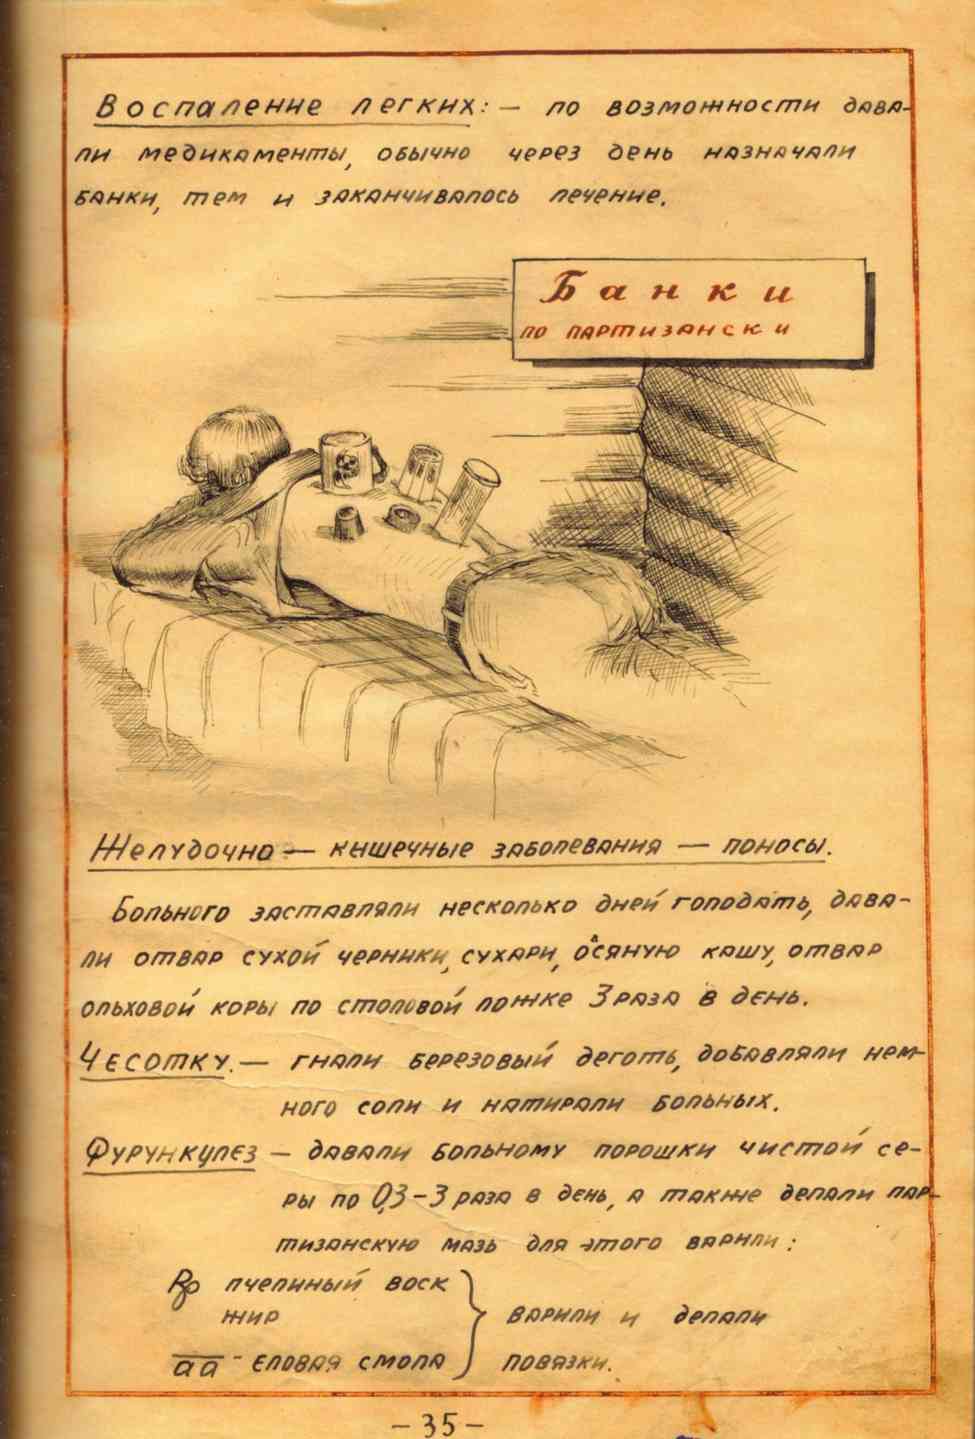 Воспаление легких: — по возможности дава-
ли медикаменты, обычно через день назначали
банки, тем и заканчивалось лечение.
Банки
по партизански
Желудочно — кишечные заболевания — поносы.
Больного заставляли несколько дней голодать, дава-
ли отвар сухой черники, сухари, овсяную кашу, отвар
ольховой коры по столовой ложке 3 раза в день.
Чесотку. — гнали березовый деготь, добавляли нем-
ного соли и натирали больных.
Фурункулез — давали больному порошки чистой се-
ры по 0,3 - 3 раза в день, а также делали пар-
тизанскую мазь для этого варили:
Rp пчелиный воск
жир
варили и делали
āā - еловая смола
повязки.
- 35 -